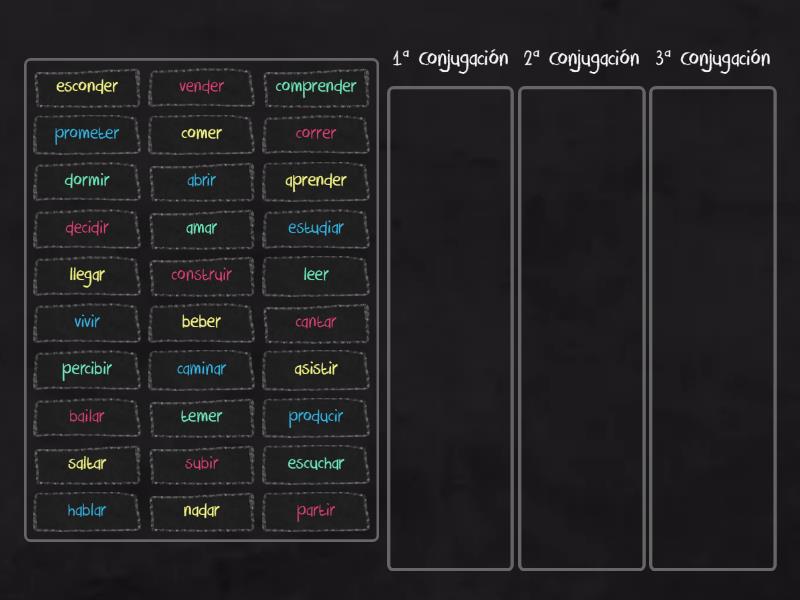 1ª Conjugación 2ª Conjugación 3ª Conjugación
esconder vender comprender
prometer comer correr
dormir abrir aprender
decidir amar estudiar
llegar construir leer
vivir beber cantar
percibir caminar asistir
bailar temer producir
saltar subir escuchar
hablar nadar partir